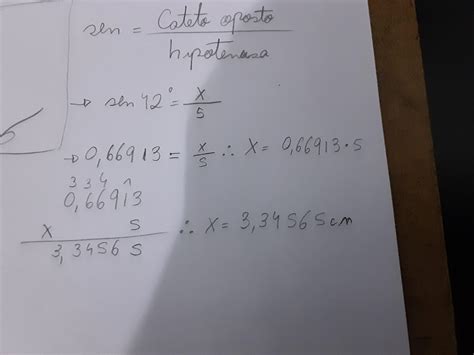 sen = Cateto oposto
hipotenusa
→ sen 42° = x
5
→ 0,66913 = x/5 ∴ X = 0,66913 · 5
3 3 4 1
0,66913
x 5
3,34565 ∴ X = 3,34565 cm